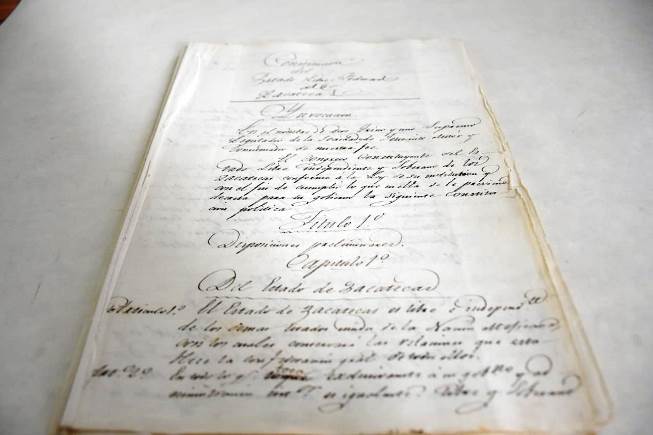 Constitucion
del
Estado Libre Federad
de
Zacatecas
Invocacion
En el nombre de Dios Trino y uno Supremo
Legislador de la Sociedad
de nuestro ser.
El Congreso Constituyente del Es
tado Libre Independiente y Soberano de los
Zacatecas conforme a la Ley de su institucion y
con el fin de cumplir lo que en ella se le previene
decreta para su gobierno la siguiente Constitu
cion politica.
Titulo 1º
Disposiciones preliminares.
Capitulo 1º
Del Estado de Zacatecas
Articulo 1º. El Estado de Zacatecas es libre é independte
de los demas Estados unidos de la Nacion
con los cuales conservará las relaciones que esta
blece la confederacion gral. de todos ellos.
Art. 2º. En todo lo qe á su gobno y ad
ministracion libre y soberano